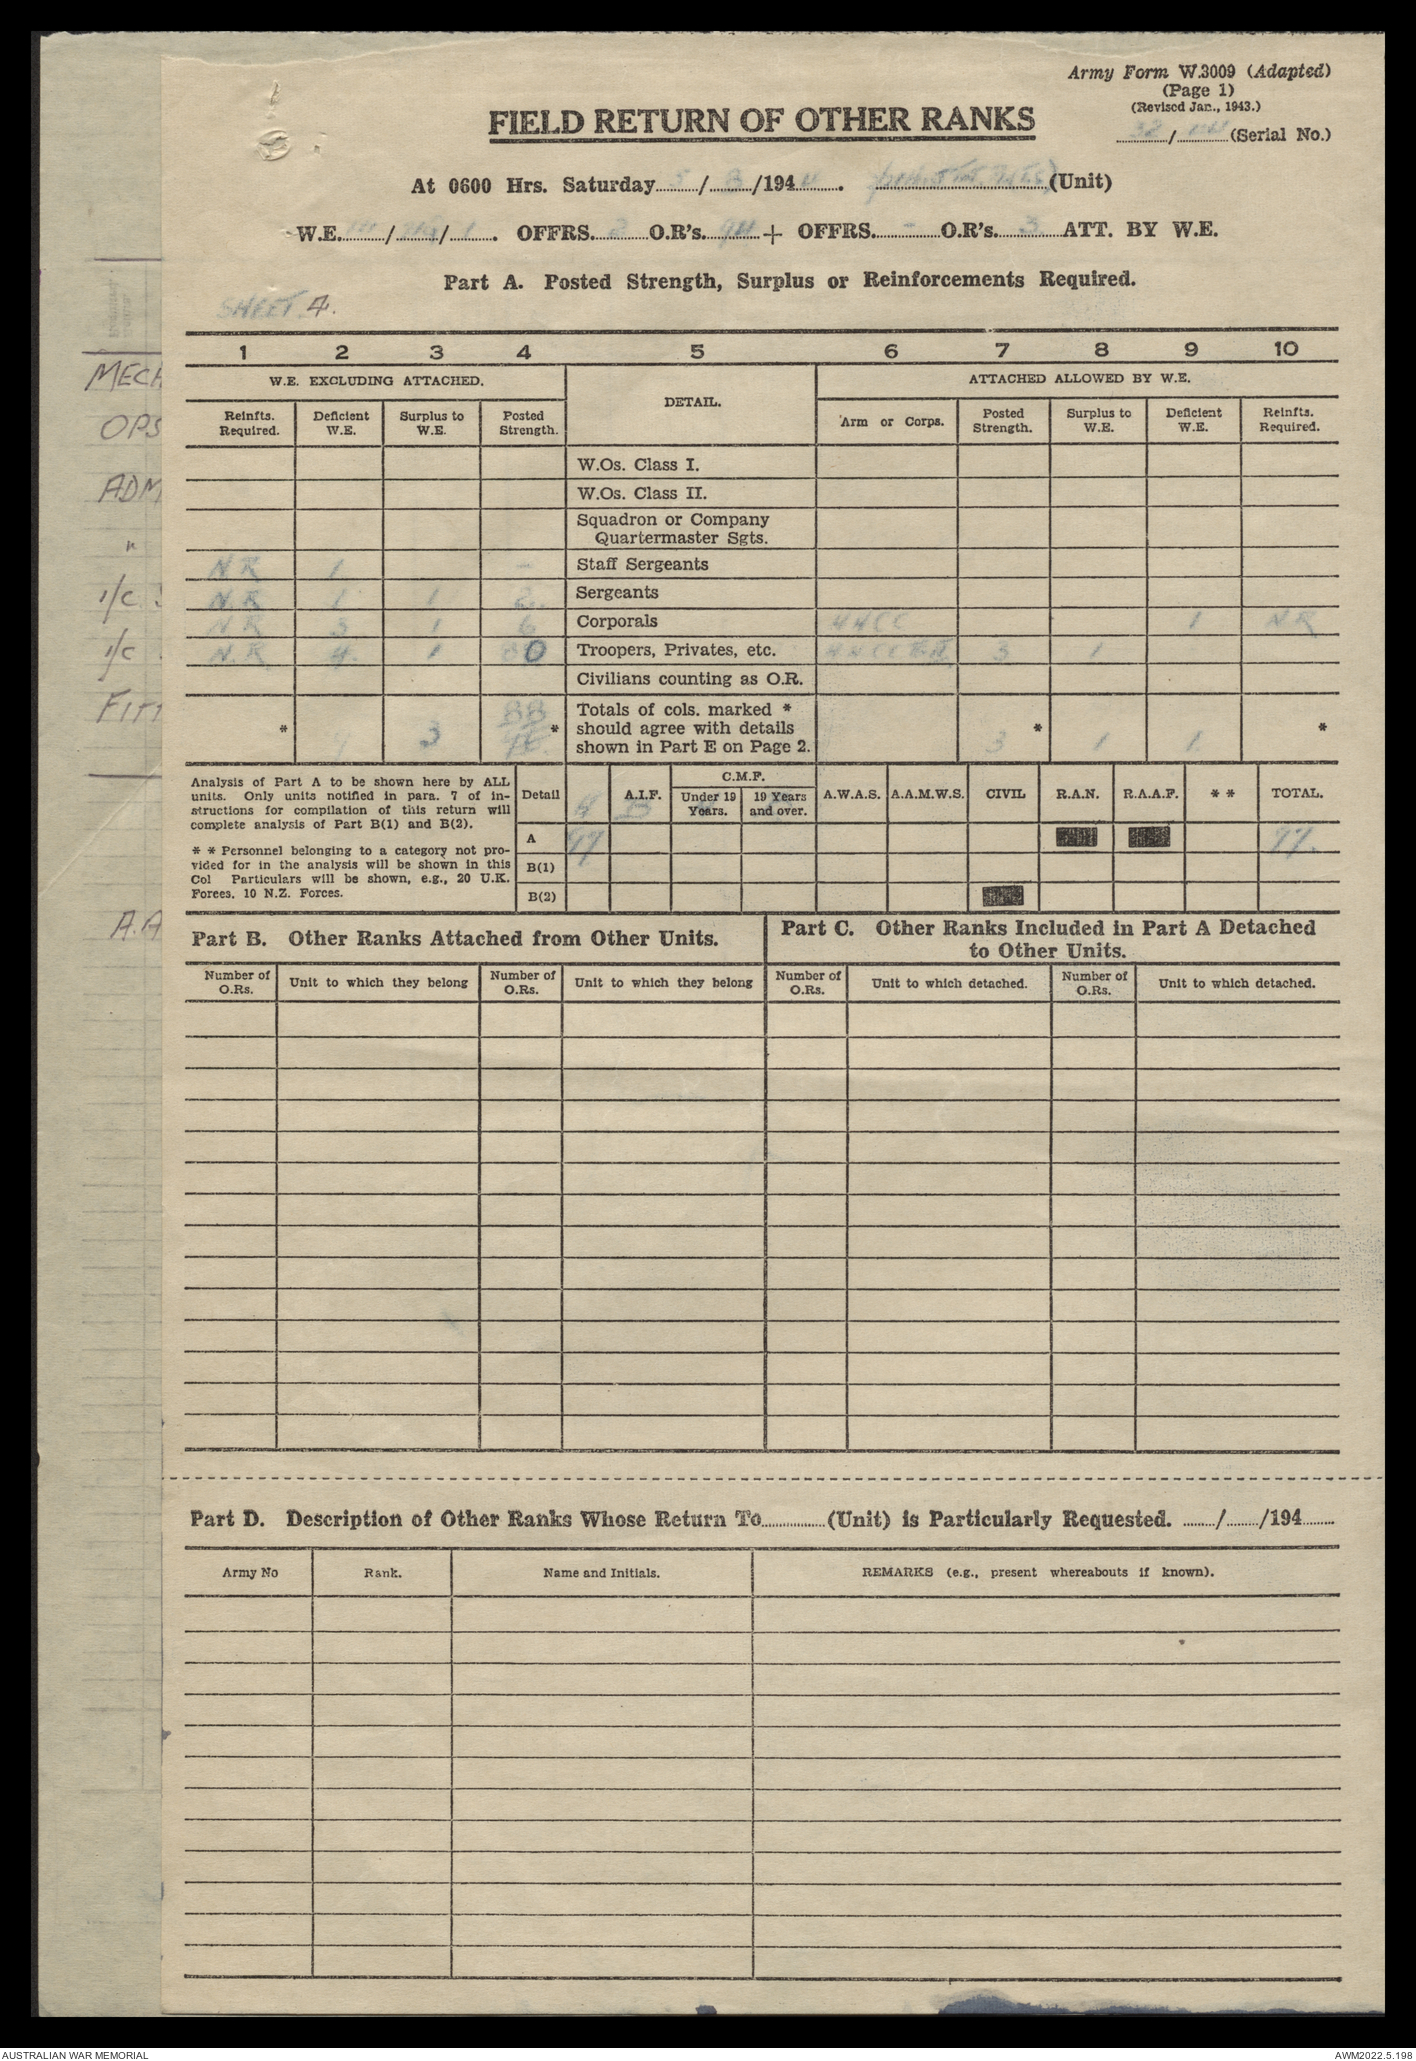 Army Form W.3009 (Adapted)
(Page 1)
(Revised Jan., 1943.)
FIELD RETURN OF OTHER RANKS
32/ (Serial No.)
At 0600 Hrs. Saturday 5/8/1944. (Unit)
W.E. / / 1. OFFRS. 2 O.R's. 94 + OFFRS. - O.R's. 3 ATT. BY W.E.
Part A. Posted Strength, Surplus or Reinforcements Required.
SHEET 4.
1 2 3 4 5 6 7 8 9 10
W.E. EXCLUDING ATTACHED. DETAIL. ATTACHED ALLOWED BY W.E.
Reinfts. Required. Deficient W.E. Surplus to W.E. Posted Strength. Arm or Corps. Posted Strength. Surplus to W.E. Deficient W.E. Reinfts. Required.
W.Os. Class I.
W.Os. Class II.
Squadron or Company
Quartermaster Sgts.
N.R 1 - Staff Sergeants
N.R 1 1 2. Sergeants
N.R 3 1 6 Corporals AACC 1 N.R
N.R 4. 1 80 Troopers, Privates, etc. AACC 3 1
Civilians counting as O.R.
88 Totals of cols. marked *
* 3 * should agree with details * *
shown in Part E on Page 2. 3 1 1
Analysis of Part A to be shown here by ALL
units. Only units notified in para. 7 of in-
structions for compilation of this return will
complete analysis of Part B(1) and B(2).
* * Personnel belonging to a category not pro-
vided for in the analysis will be shown in this
Col Particulars will be shown, e.g., 20 U.K.
Forces. 10 N.Z. Forces.
C.M.F.
Detail A.I.F. Under 19 Years. 19 Years and over. A.W.A.S. A.A.M.W.S. CIVIL R.A.N. R.A.A.F. * * TOTAL.
A 97 97.
B(1)
B(2)
Part B. Other Ranks Attached from Other Units.
Part C. Other Ranks Included in Part A Detached
to Other Units.
Number of O.Rs. Unit to which they belong Number of O.Rs. Unit to which they belong Number of O.Rs. Unit to which detached. Number of O.Rs. Unit to which detached.
Part D. Description of Other Ranks Whose Return To (Unit) is Particularly Requested. / /194
Army No Rank. Name and Initials. REMARKS (e.g., present whereabouts if known).
MECH
OPS
ADM
"
I/C
I/C
FITT
A.A
AUSTRALIAN WAR MEMORIAL
AWM2022.5.198